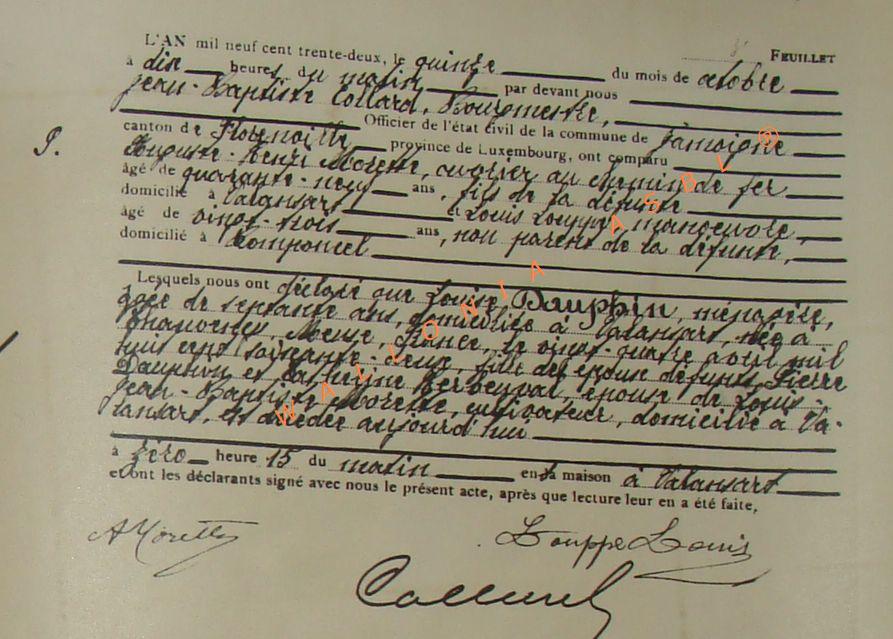 FEUILLET
L'AN mil neuf cent trente-deux, le quinze du mois de octobre
à dix heures du matin par devant nous
Jean-Baptiste Collard, Bourgmestre,
Officier de l'état civil de la commune de Jamoigne
canton de Florenville province de Luxembourg, ont comparu
Auguste-Henri Morette, ouvrier au chemin de fer
âgé de quarante-neuf ans, fils de la défunte
domicilié à Valansart et Louis Louppe, manoeuvre,
âgé de vingt-trois ans, non parent de la défunte,
domicilié à
Lesquels nous ont déclaré que Louise Dauphin, ménagère,
âgée de septante ans, domiciliée à Valansart, née à
Meuse, France, le vingt-quatre avril mil
huit cent soixante-deux, fille des époux défunts Pierre
Dauphin et Catherine épouse de Louis-
Jean-Baptiste Morette, cultivateur, domicilié à Va-
lansart, est décédée aujourd'hui
à zéro heure 15 du matin en sa maison à Valansart
et ont les déclarants signé avec nous le présent acte, après que lecture leur en a été faite,
AMorette Louppe Louis
Collard
WALLONIA ASBL ®